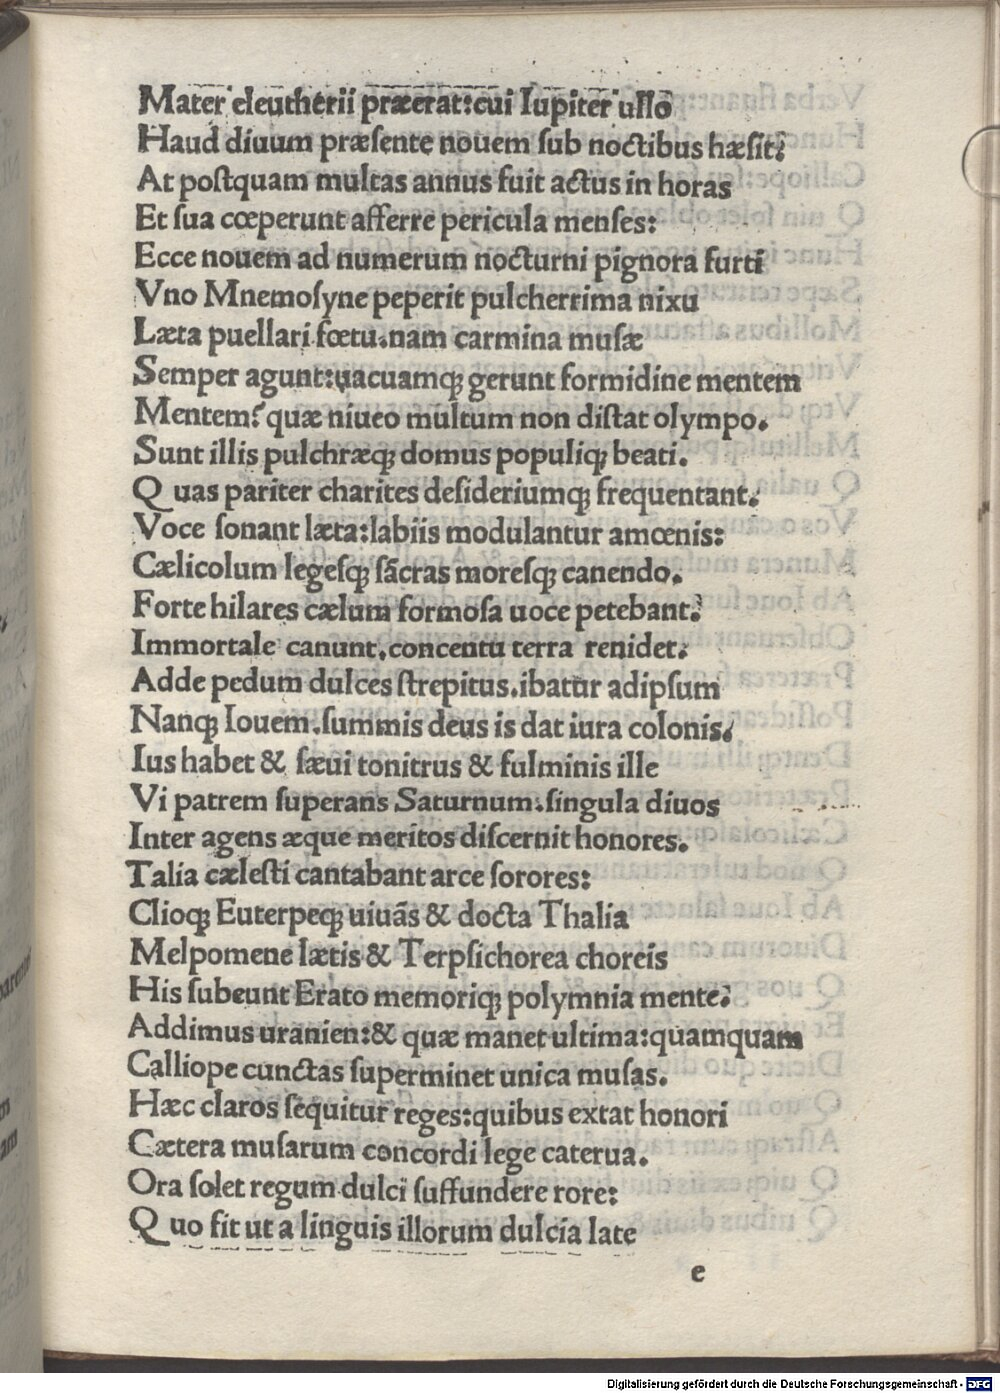 Mater eleutherii præerat:cui Iupiter ullo
Haud diuum præsente nouem sub noctibus hæsit;
At postquam multas annus fuit actus in horas
Et sua cœperunt afferre pericula menses:
Ecce nouem ad numerum nocturni pignora furti
Vno Mnemosyne peperit pulcherrima nixu
Læta puellari fœtu.nam carmina musæ
Semper agunt:uacuamq; gerunt formidine mentem
Mentem? quæ niueo multum non distat olympo.
Sunt illis pulchræq; domus populiq; beati.
Q uas pariter charites desideriumq; frequentant;
Voce sonant læta:labiis modulantur amœnis:
Cælicolum legesq; sacras moresq; canendo.
Forte hilares cælum formosa uoce petebant;
Immortale canunt.concentu terra renidet.
Adde pedum dulces strepitus.ibatur adipsum
Nanq; Iouem.summis deus is dat iura colonis;
Ius habet & sæui tonitrus & fulminis ille
Vi patrem superans Saturnum.singula diuos
Inter agens æque meritos discernit honores.
Talia cælesti cantabant arce sorores:
Clioq; Euterpeq; uiuãs & docta Thalia
Melpomene lætis & Terpsichorea choreis
His subeunt Erato memoriq; polymnia mente;
Addimus uranien:& quæ manet ultima:quamquam
Calliope cunctas superminet unica musas.
Hæc claros sequitur reges:quibus extat honori
Cætera musarum concordi lege caterua.
Ora solet regum dulci suffundere rore:
Q uo fit ut a linguis illorum dulcia late
e
Digitalisierung gefördert durch die Deutsche Forschungsgemeinschaft - DFG